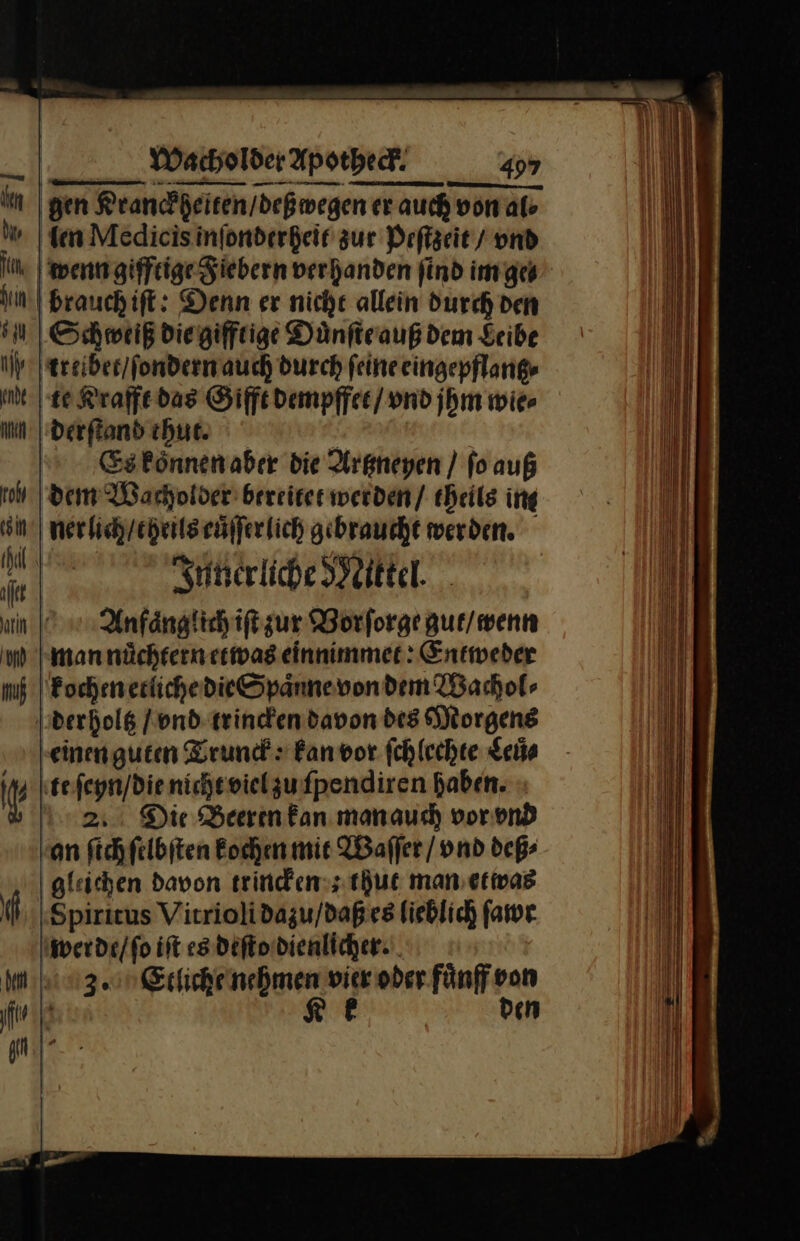 Wacholder Apotheck. 497
gen Kranckheiten/deßwegen er auch von al⸗
len Medicis inſonderheit zur Peſtzeit / vnd
wenn gifftige Fiebern verhanden ſind im ge⸗
brauch iſt: Denn er nicht allein durch den
Schweiß die gifftige Duͤnſte auß dem Leibe
treibet/ſondern auch durch ſeine eingepflantz⸗
te Krafft das Gifft dempffet/ vnd jhm wie⸗
derſtand thut.
Es koͤnnen aber die Artzneyen / ſo auß
dem Wacholder bereitet werden/ theils in⸗
nerlich/theils euͤſſerlich gebraucht werden.
Innerliche Mittel.
Anfaͤnglich iſt zur Vorſorge gut/wenn
man nuͤchtern etwas einnimmet: Entweder
kochen etliche die Spaͤnne von dem Wachol⸗
der holtz / vnd trincken davon des Morgens
einen guten Trunck: kan vor ſchlechte Leuͤ⸗
te ſeyn/die nicht viel zu ſpendiren haben.
2. Die Beeren kan man auch vor vnd
an ſich ſelbſten kochen mit Waſſer / vnd deß⸗
gleichen davon trincken; thut man etwas
Spiritus Vitrioli dazu/daß es lieblich ſawr
werde/ſo iſt es deſto dienlicher.
3. Etliche nehmen vier oder fuͤnff von
K k den